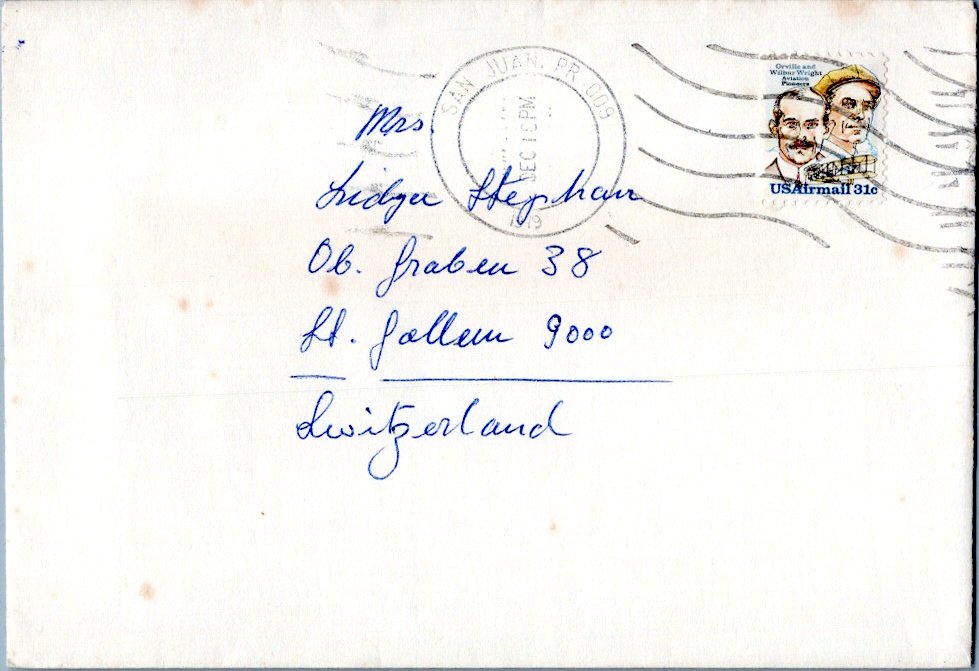 SAN JUAN, PR 009
DEC 1 PM
1979
Orville and
Wilbur Wright
Aviation
Pioneers
USAirmail 31c
Mrs
Stephan
Ob. Graben 38
St. Gallen 9000
Switzerland